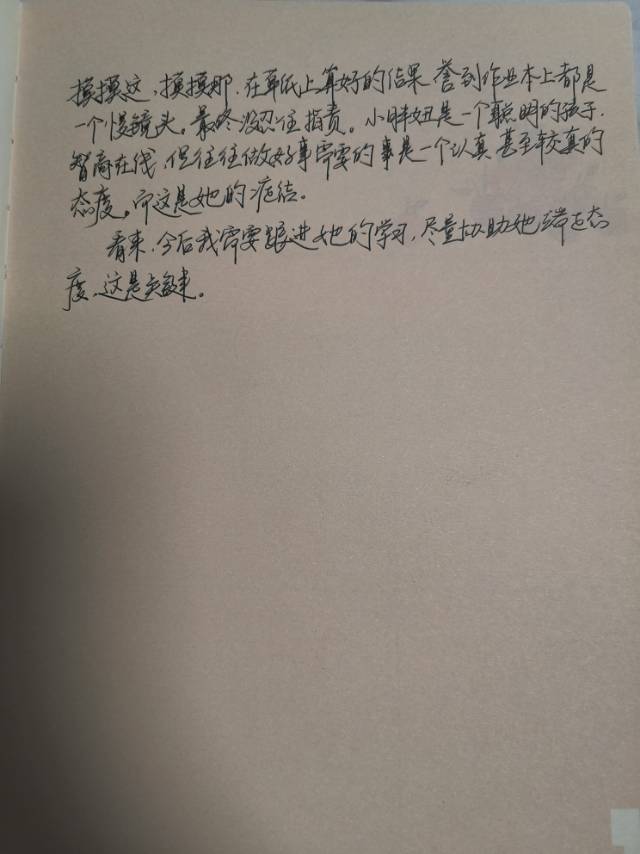 摸摸这，摸摸那，在草纸上算好的结果 誊到作业本上都是
一个慢镜头。最终没忍住指责。小胖妞是一个聪明的孩子，
智商在线，但往往做好事需要的事是一个认真甚至较真的
态度。而这是她的症结。
看来，今后我需要跟进她的学习，尽量协助她端正态
度，这是关键。